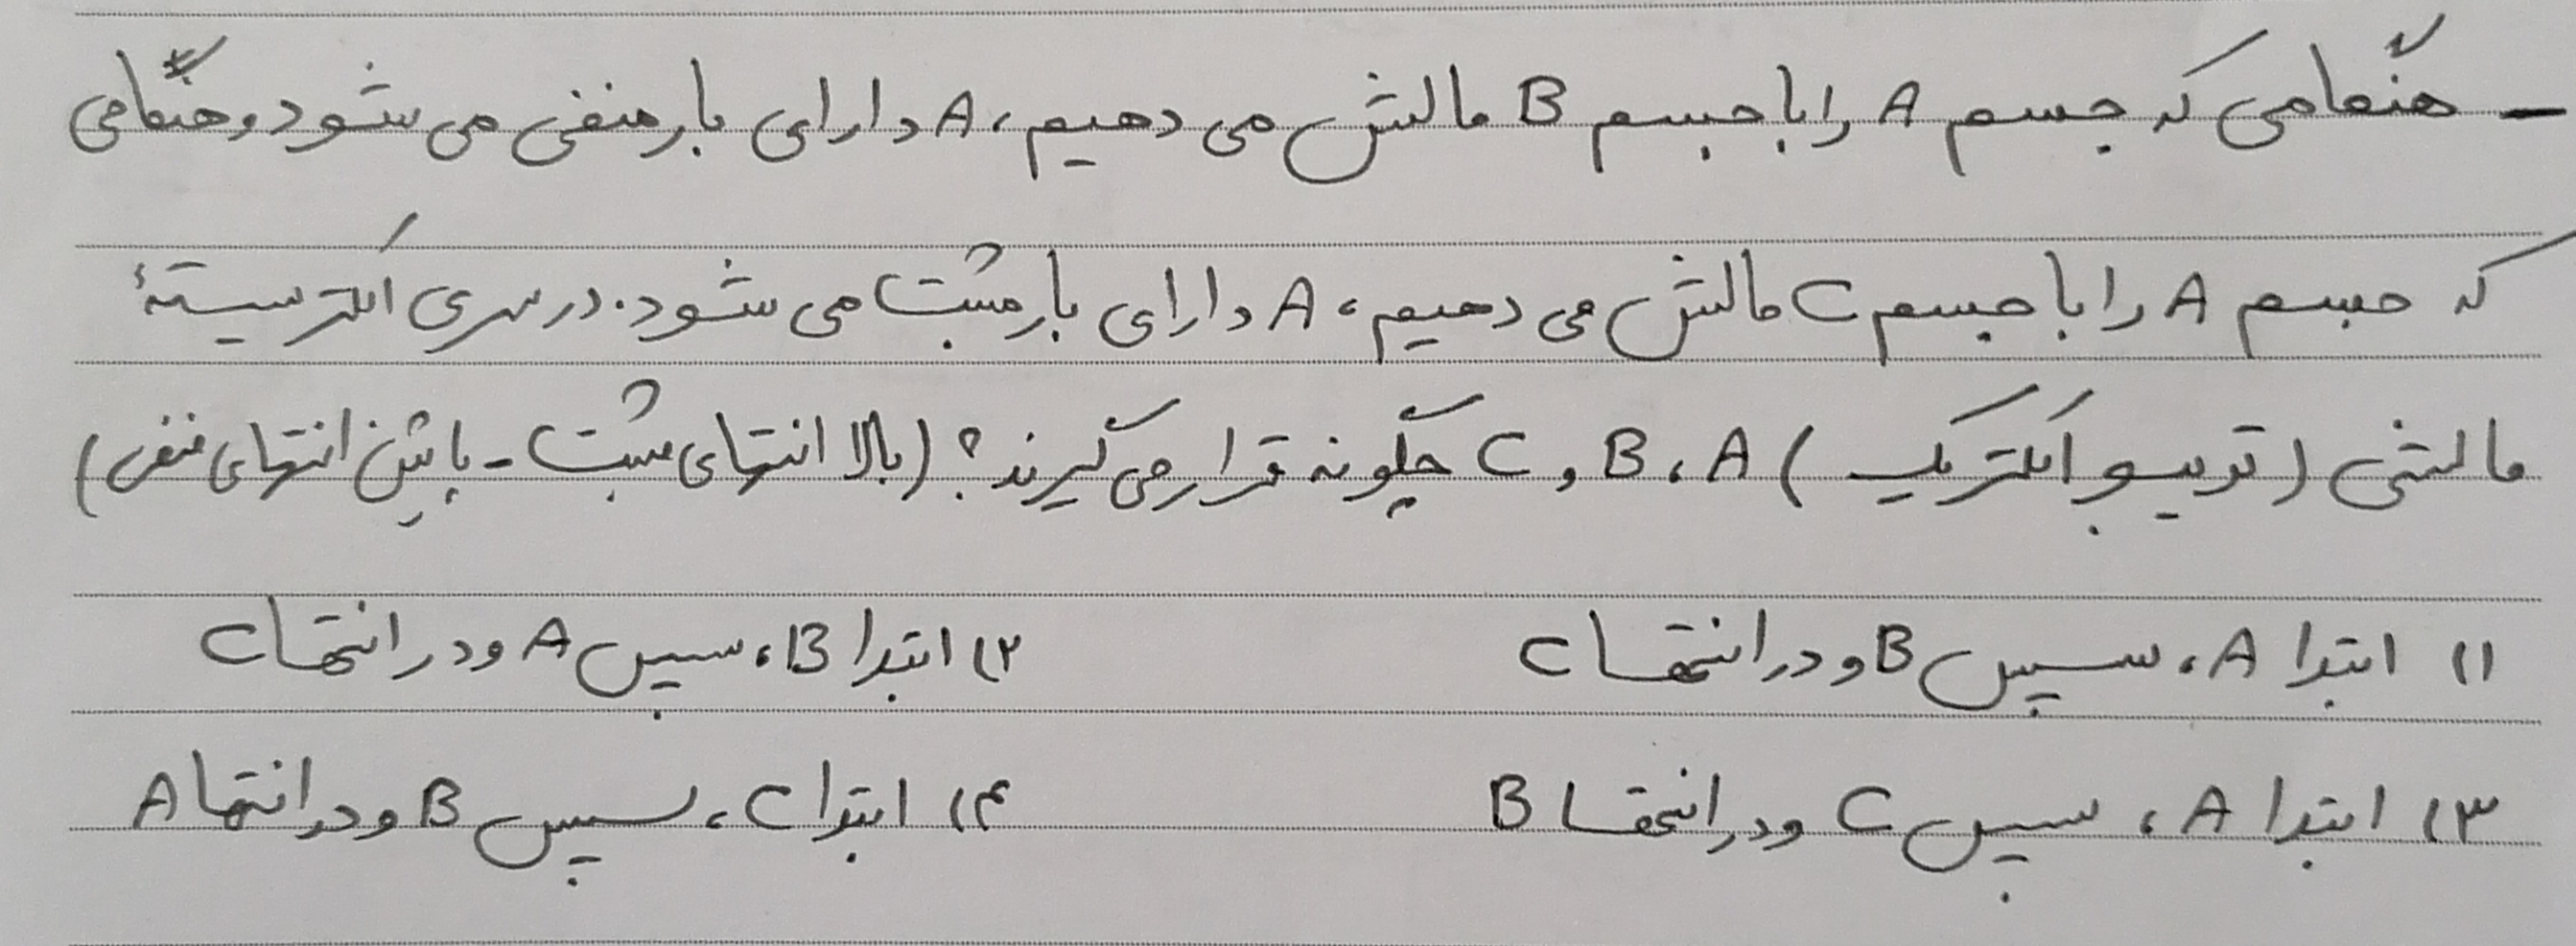 - هنگامی که جسم A را با جسم B مالش می دهیم، A دارای بار منفی می شود و هنگامی
که جسم A را با جسم C مالش می دهیم، A دارای بار مثبت می شود. در سری الکتریسیتهٔ
مالشی (تریبوالکتریک) A، B و C چگونه قرار می گیرند؟ (بالا انتهای مثبت - پائین انتهای منفی)
۱) ابتدا A، سپس B و در انتها C ۲) ابتدا B، سپس A و در انتها C
۳) ابتدا A، سپس C و در انتها B ۴) ابتدا C، سپس B و در انتها A